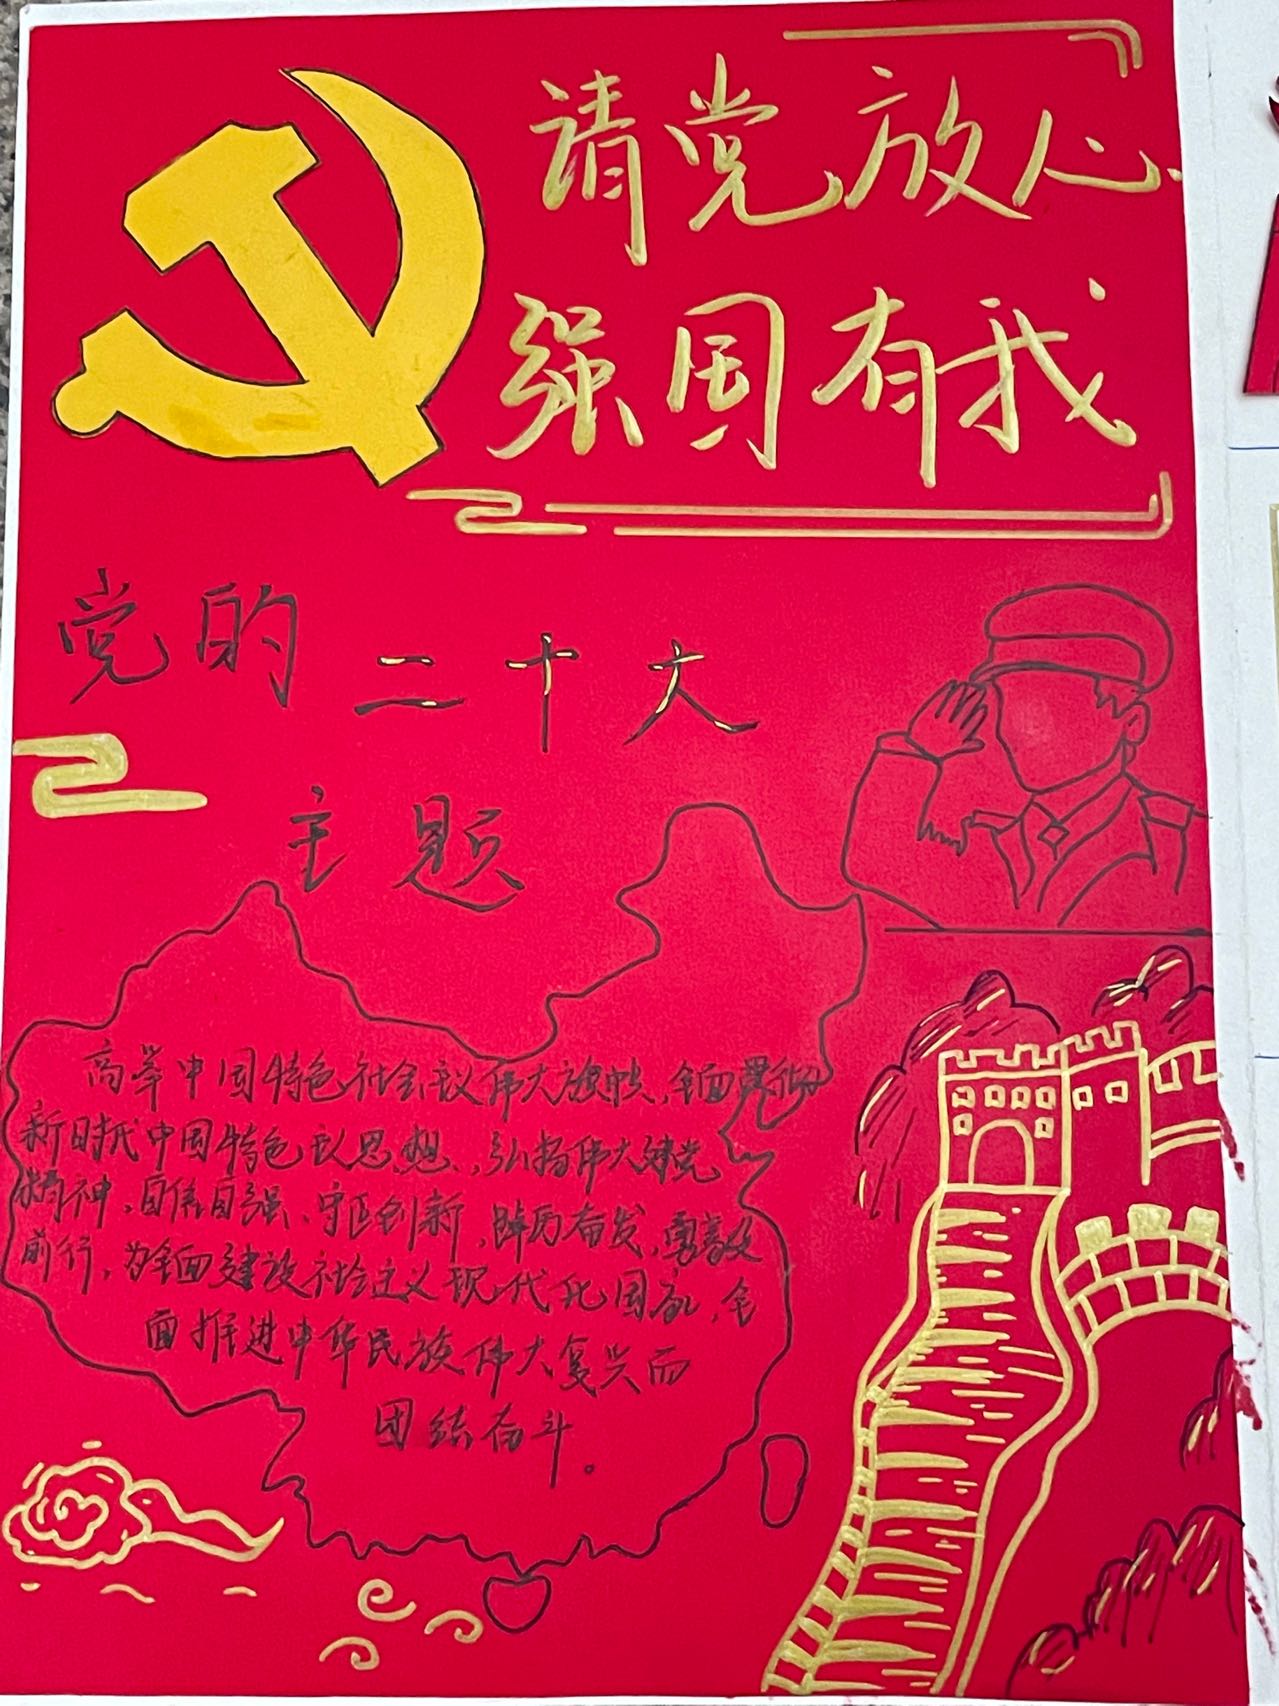 请党放心
强国有我
党的二十大
主题
高举中国特色社会主义伟大旗帜,全面贯彻
新时代中国特色主义思想,弘扬伟大建党
精神,自信自强、守正创新,踔厉奋发,勇毅
前行,为全面建设社会主义现代化国家,全
面推进中华民族伟大复兴而
团结奋斗。